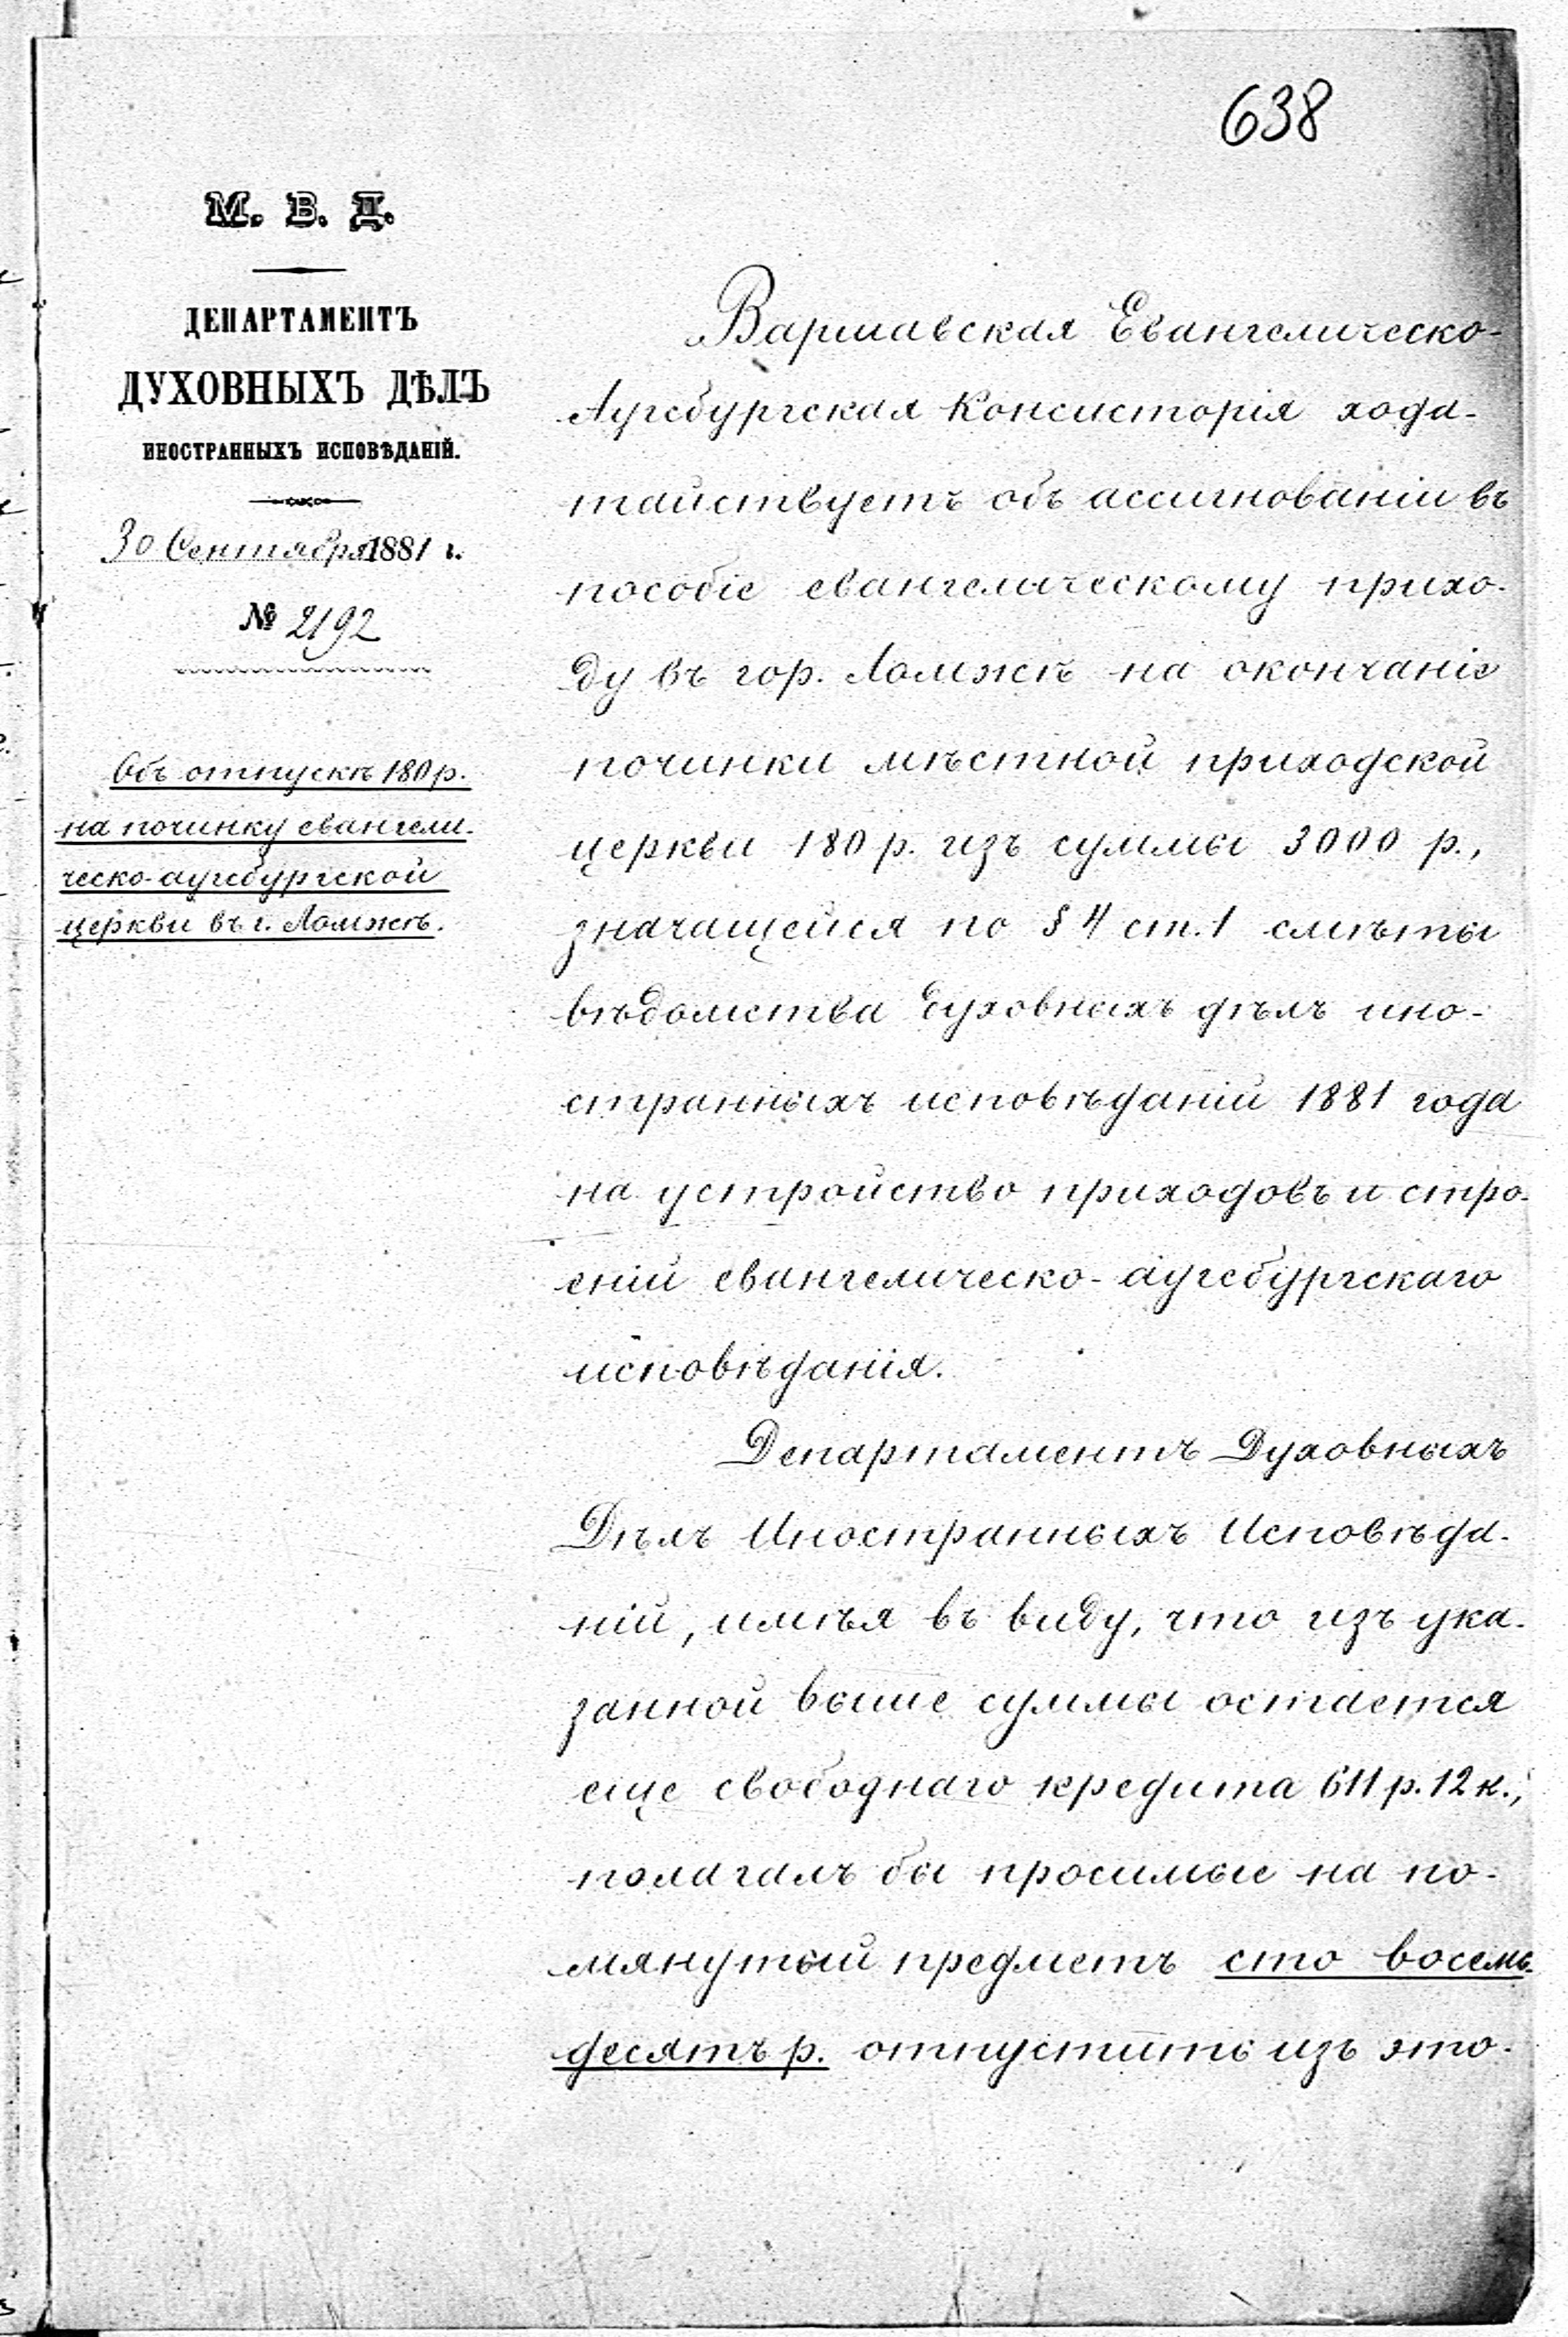 638
М. В. Д.
ДЕПАРТАМЕНТЪ
ДУХОВНЫХЪ ДѢЛЪ
ИНОСТРАННЫХЪ ИСПОВѢДАНІЙ.
30 Сентября 1881 г.
№ 2192
Объ отпускѣ 180 р.
на починку евангели-
ческо-аугсбургской
церкви въ г. Ломжѣ.
Варшавская Евангелическо-
Аугсбургская Консисторія хода-
тайствуетъ объ ассигнованіи въ
пособіе евангелическому прихо-
ду въ гор. Ломжѣ на окончаніе
починки мѣстной приходской
церкви 180 р. изъ суммы 3000 р.,
значащейся по § 4 ст. 1 смѣты
вѣдомства духовныхъ дѣлъ ино-
странныхъ исповѣданій 1881 года
на устройство приходовъ и стро-
еній евангелическо-аугсбургскаго
исповѣданія.
Департаментъ Духовныхъ
Дѣлъ Иностранныхъ Исповѣда-
ній, имѣя въ виду, что изъ ука-
занной выше суммы остается
еще свободнаго кредита 611 р. 12 к.,
полагалъ бы просимые на по-
мянутый предметъ сто восемь-
десятъ р. отпустить изъ это-